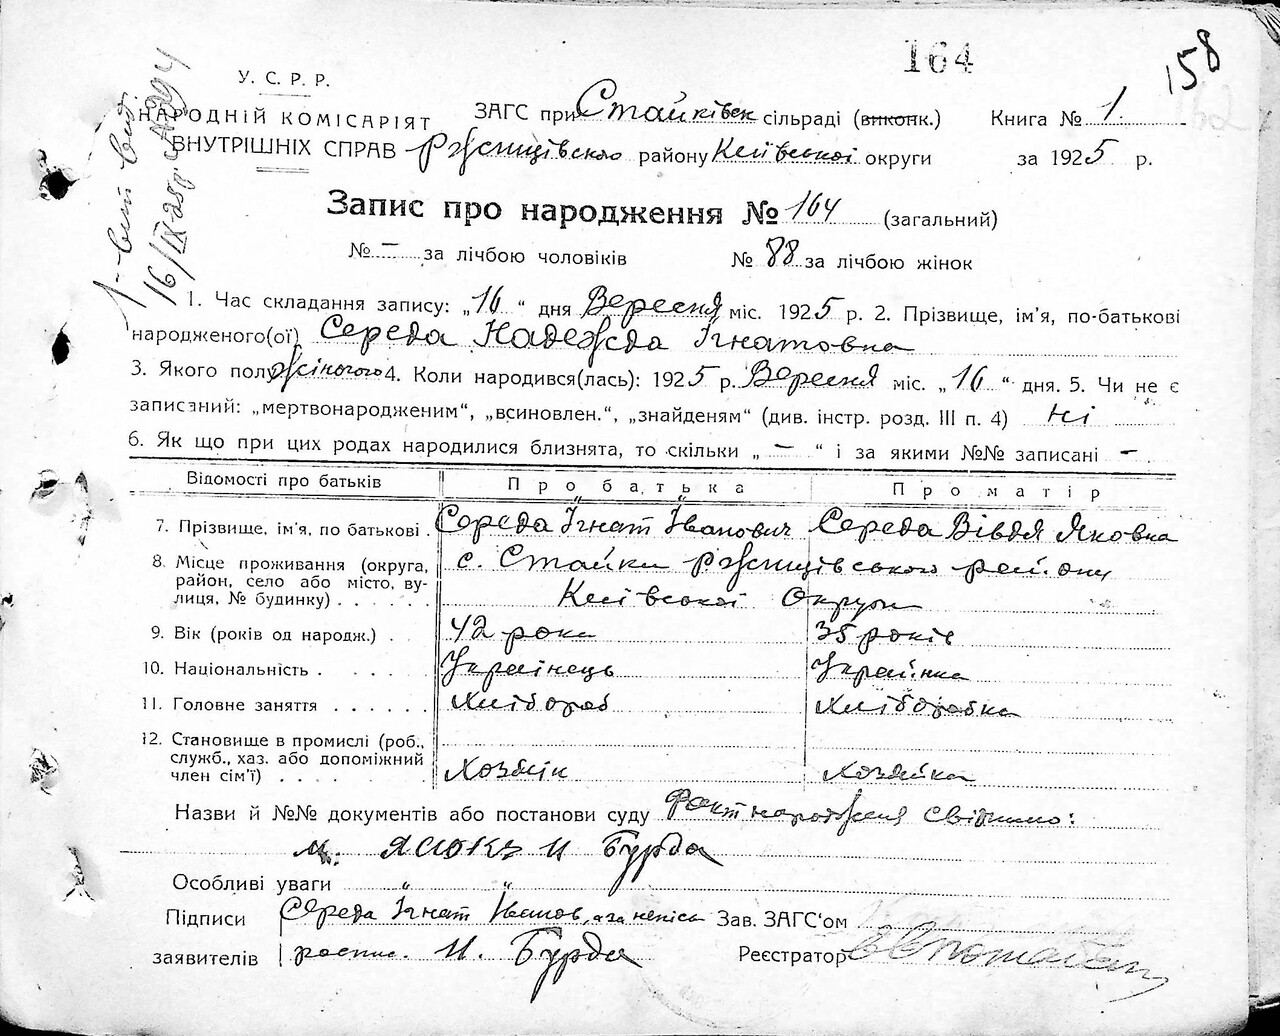 164
158
У. С. Р. Р.
НАРОДНІЙ КОМІСАРІЯТ
ВНУТРІШНІХ СПРАВ
ЗАГС при Стайківск сільраді (виконк.) Книга № 1
Ржищівского району Київської округи за 1925 р.
1 - вит вид.
16/IX 25р
Запис про народження № 164 (загальний)
№ — за лічбою чоловіків № 88 за лічбою жінок
1. Час складання запису: „16“ дня Вересня міс. 1925 р. 2. Прізвище, ім'я, по-батькові
народженого(ої) Середа Надежда Ігнатовна
3. Якого полу жіночого 4. Коли народився(лась): 1925 р. Вересня міс. „16“ дня. 5. Чи не є
записаний: „мертвонародженим“, „всиновлен.“, „знайденям“ (див. інстр. розд. III п. 4) ні
6. Як що при цих родах народилися близнята, то скільки „ — “ і за якими №№ записані —
Відомості про батьків Про батька Про матір
7. Прізвище, ім'я, по батькові . Середа Ігнат Іванович Середа Вівдя Яковна
8. Місце проживання (округа, район, село або місто, вулиця, № будинку) . . . . . . с. Стайки Ржищівського району
Київської Округи
9. Вік (років од народж.) . . 42 рока 35 років
10. Національність . . . . . Українець Українка
11. Головне заняття . . . . . . Хлібороб Хліборобка
12. Становище в промислі (роб.,
служб., хаз. або допоміжний
член сім'ї) . . . . . . . Хозяїн Хозяйка
Назви й №№ документів або постанови суду Факт народженя свідчимо:
И Бурда
Особливі уваги „ „
Підписи Середа Ігнат Іванов, а за неписм Зав. ЗАГС'ом
заявителів роспис. И. Бурда Реєстратор